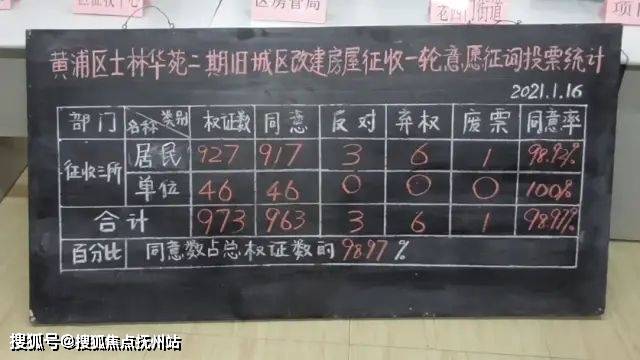 区房管局
老西门街道
项目
黄浦区士林华苑二期旧城区改建房屋征收一轮意愿征询投票统计
2021.1.16
部门 名称 类别 权证数 同意 反对 弃权 废票 同意率
征收三所 居民 927 917 3 6 1 98.92%
单位 46 46 0 0 0 100%
合计 973 963 3 6 1 98.97%
百分比 同意数占总权证数的 98.97 %
搜狐号@搜狐焦点抚州站